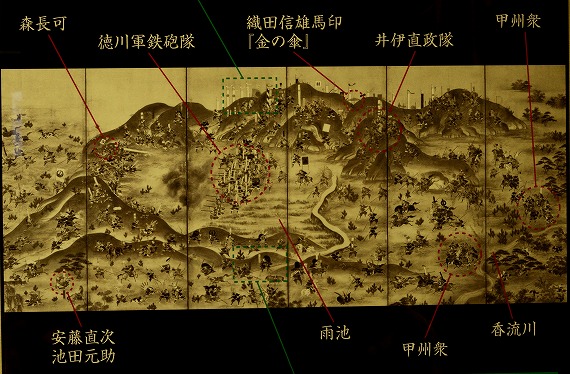 森長可
徳川軍鉄砲隊
織田信雄馬印
『金の傘』
井伊直政隊
甲州衆
安藤直次
池田元助
雨池
甲州衆
香流川